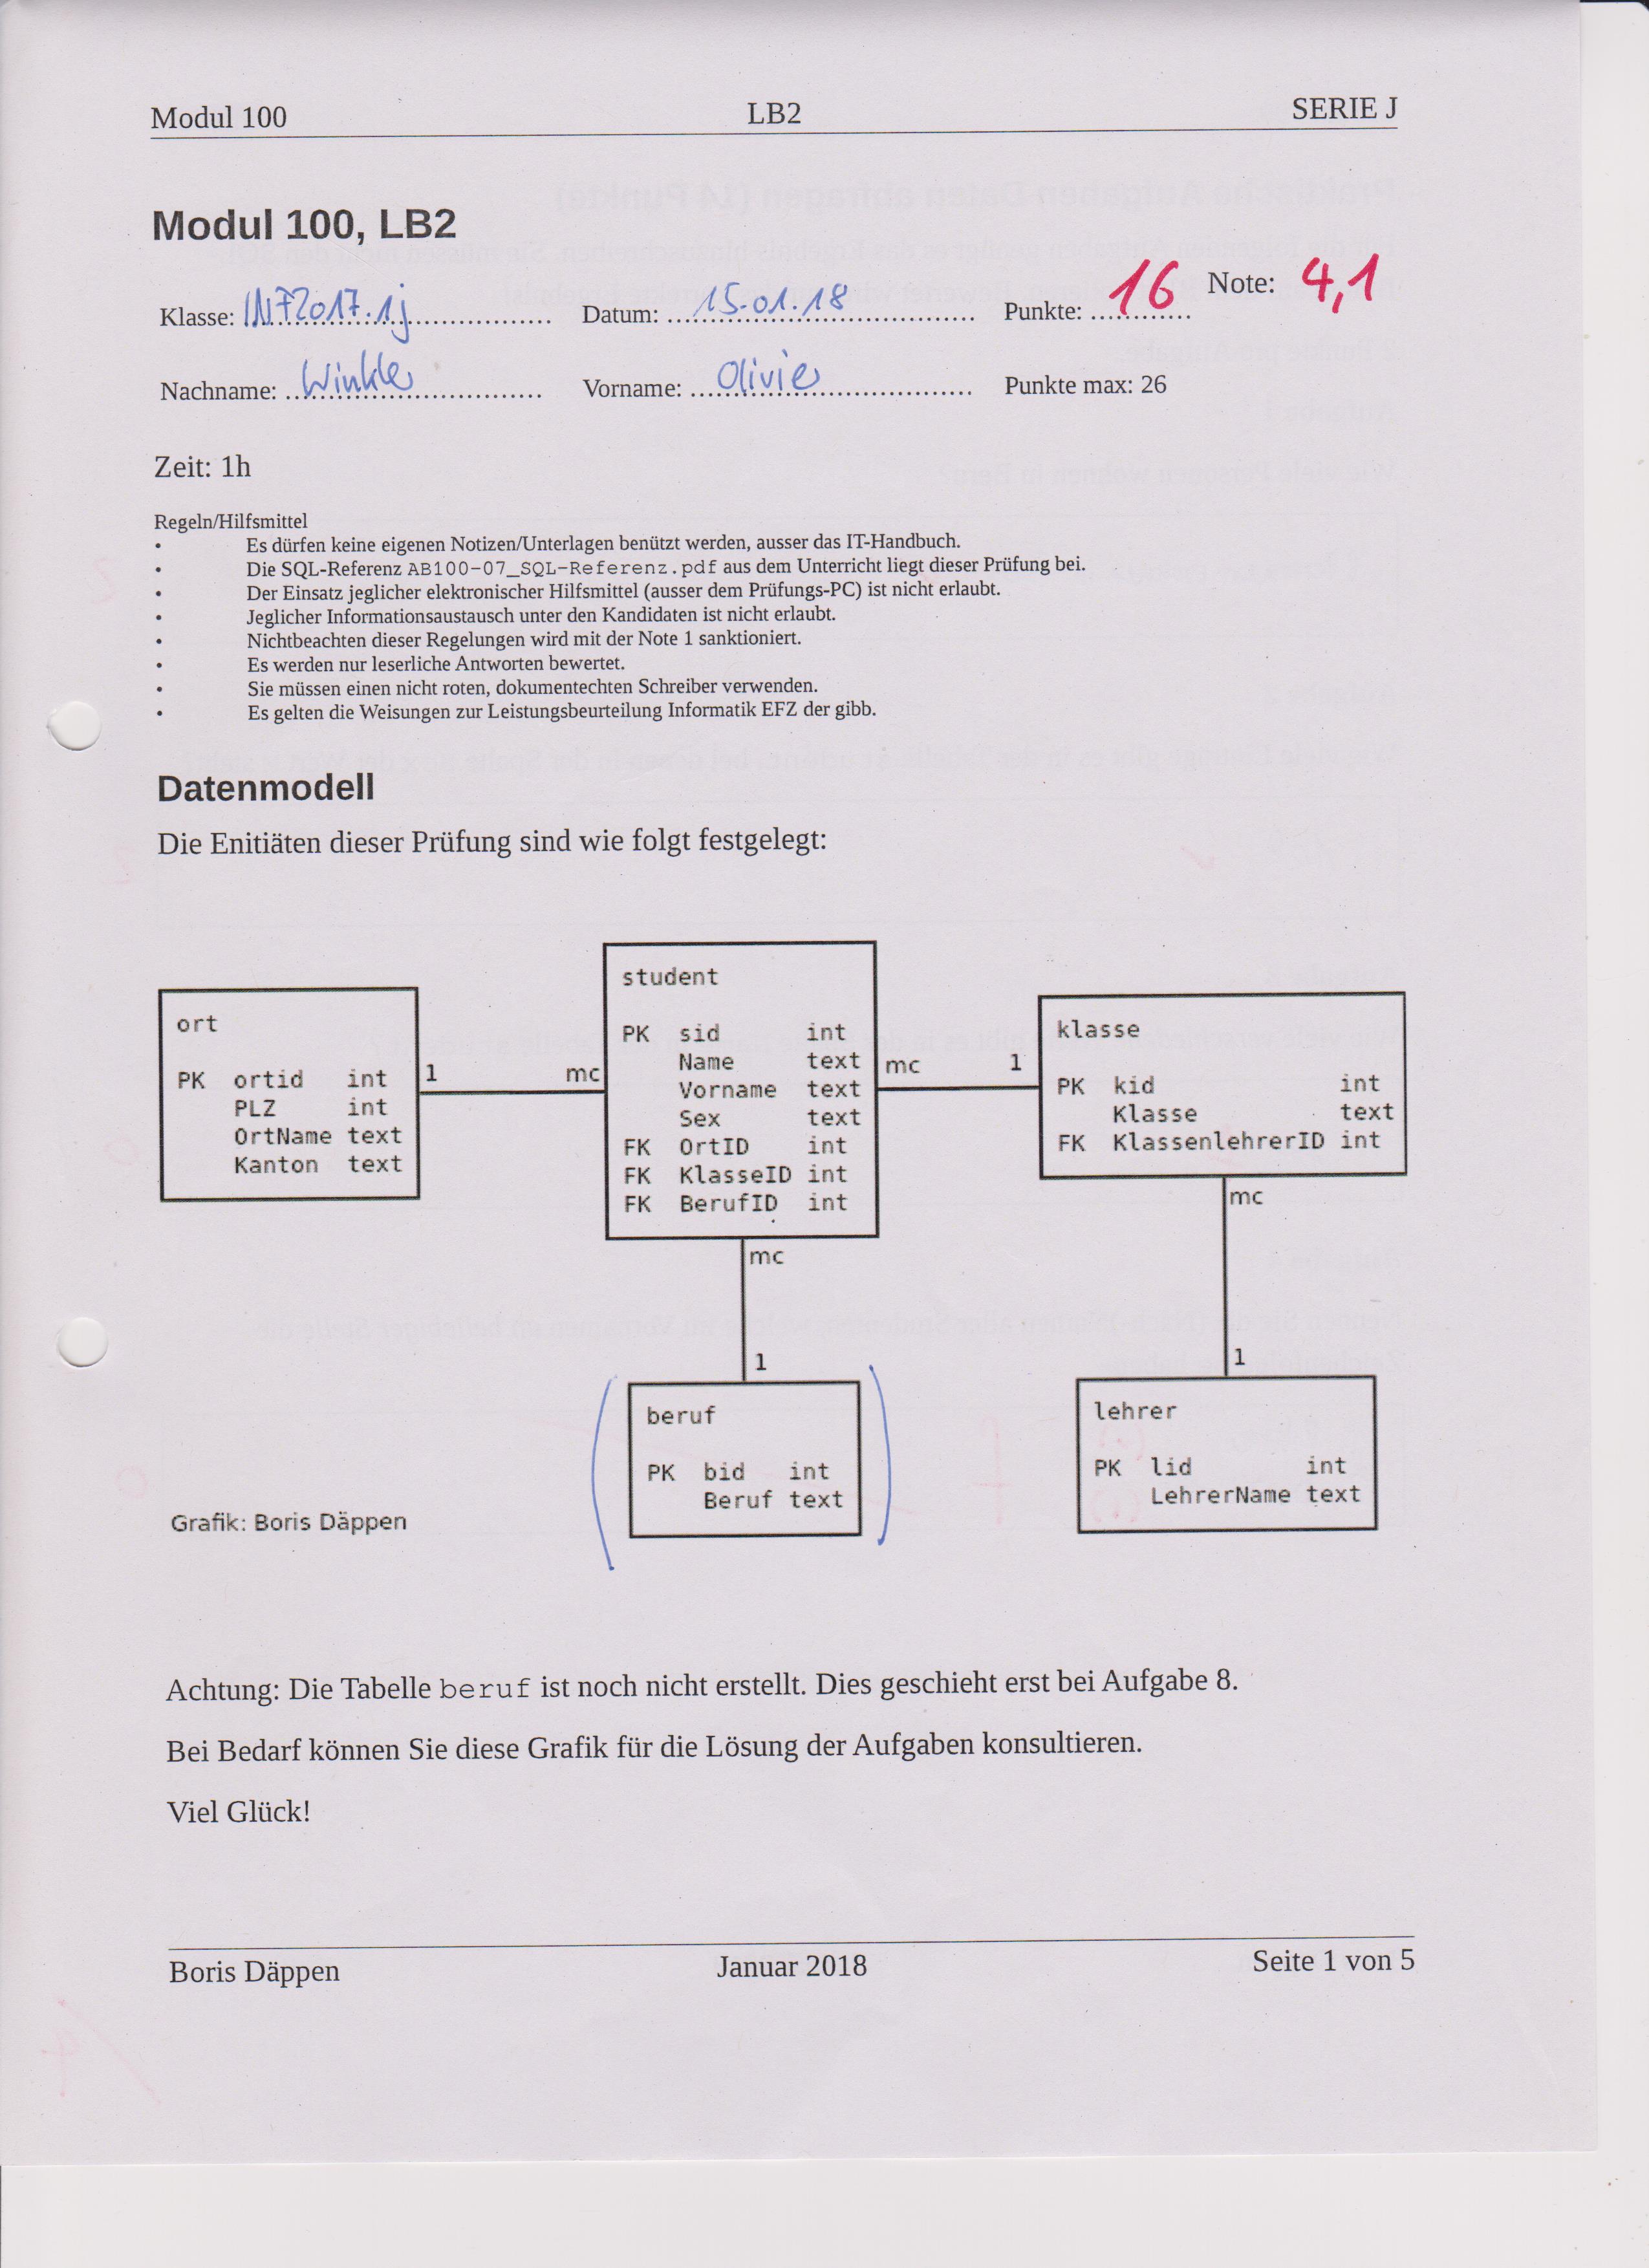 Modul 100 LB2 SERIE J
Modul 100, LB2
Klasse: INF2017.1j Datum: 15.01.18 Punkte: 16 Note: 4,1
Nachname: Winkler Vorname: Olivier Punkte max: 26
Zeit: 1h
Regeln/Hilfsmittel
• Es dürfen keine eigenen Notizen/Unterlagen benützt werden, ausser das IT-Handbuch.
• Die SQL-Referenz AB100-07_SQL-Referenz.pdf aus dem Unterricht liegt dieser Prüfung bei.
• Der Einsatz jeglicher elektronischer Hilfsmittel (ausser dem Prüfungs-PC) ist nicht erlaubt.
• Jeglicher Informationsaustausch unter den Kandidaten ist nicht erlaubt.
• Nichtbeachten dieser Regelungen wird mit der Note 1 sanktioniert.
• Es werden nur leserliche Antworten bewertet.
• Sie müssen einen nicht roten, dokumentechten Schreiber verwenden.
• Es gelten die Weisungen zur Leistungsbeurteilung Informatik EFZ der gibb.
Datenmodell
Die Enitiäten dieser Prüfung sind wie folgt festgelegt:
ort
PK ortid int
PLZ int
OrtName text
Kanton text
1 mc
student
PK sid int
Name text
Vorname text
Sex text
FK OrtID int
FK KlasseID int
FK BerufID int
mc 1
klasse
PK kid int
Klasse text
FK KlassenlehrerID int
mc
1
mc
1
beruf
PK bid int
Beruf text
lehrer
PK lid int
LehrerName text
Grafik: Boris Däppen
Achtung: Die Tabelle beruf ist noch nicht erstellt. Dies geschieht erst bei Aufgabe 8.
Bei Bedarf können Sie diese Grafik für die Lösung der Aufgaben konsultieren.
Viel Glück!
Boris Däppen Januar 2018 Seite 1 von 5